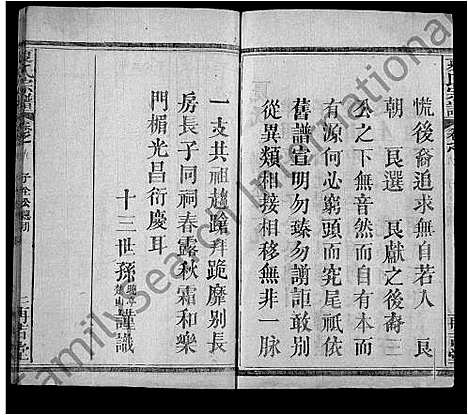 慌後裔追求無自若人　艮
朝　艮選　艮獻之後裔三
公之下無音然而自有本
有源何必窮頭而究尾祇依
舊譜宣明毋臻勿謗詎敢別
從異類相接相移無非一脉
一支共祖趨蹌拜跪靡別長
房長子同祠春露秋霜和樂
門楣光昌衍慶耳
十三世孫　謹識
氏宗譜
familysearch International